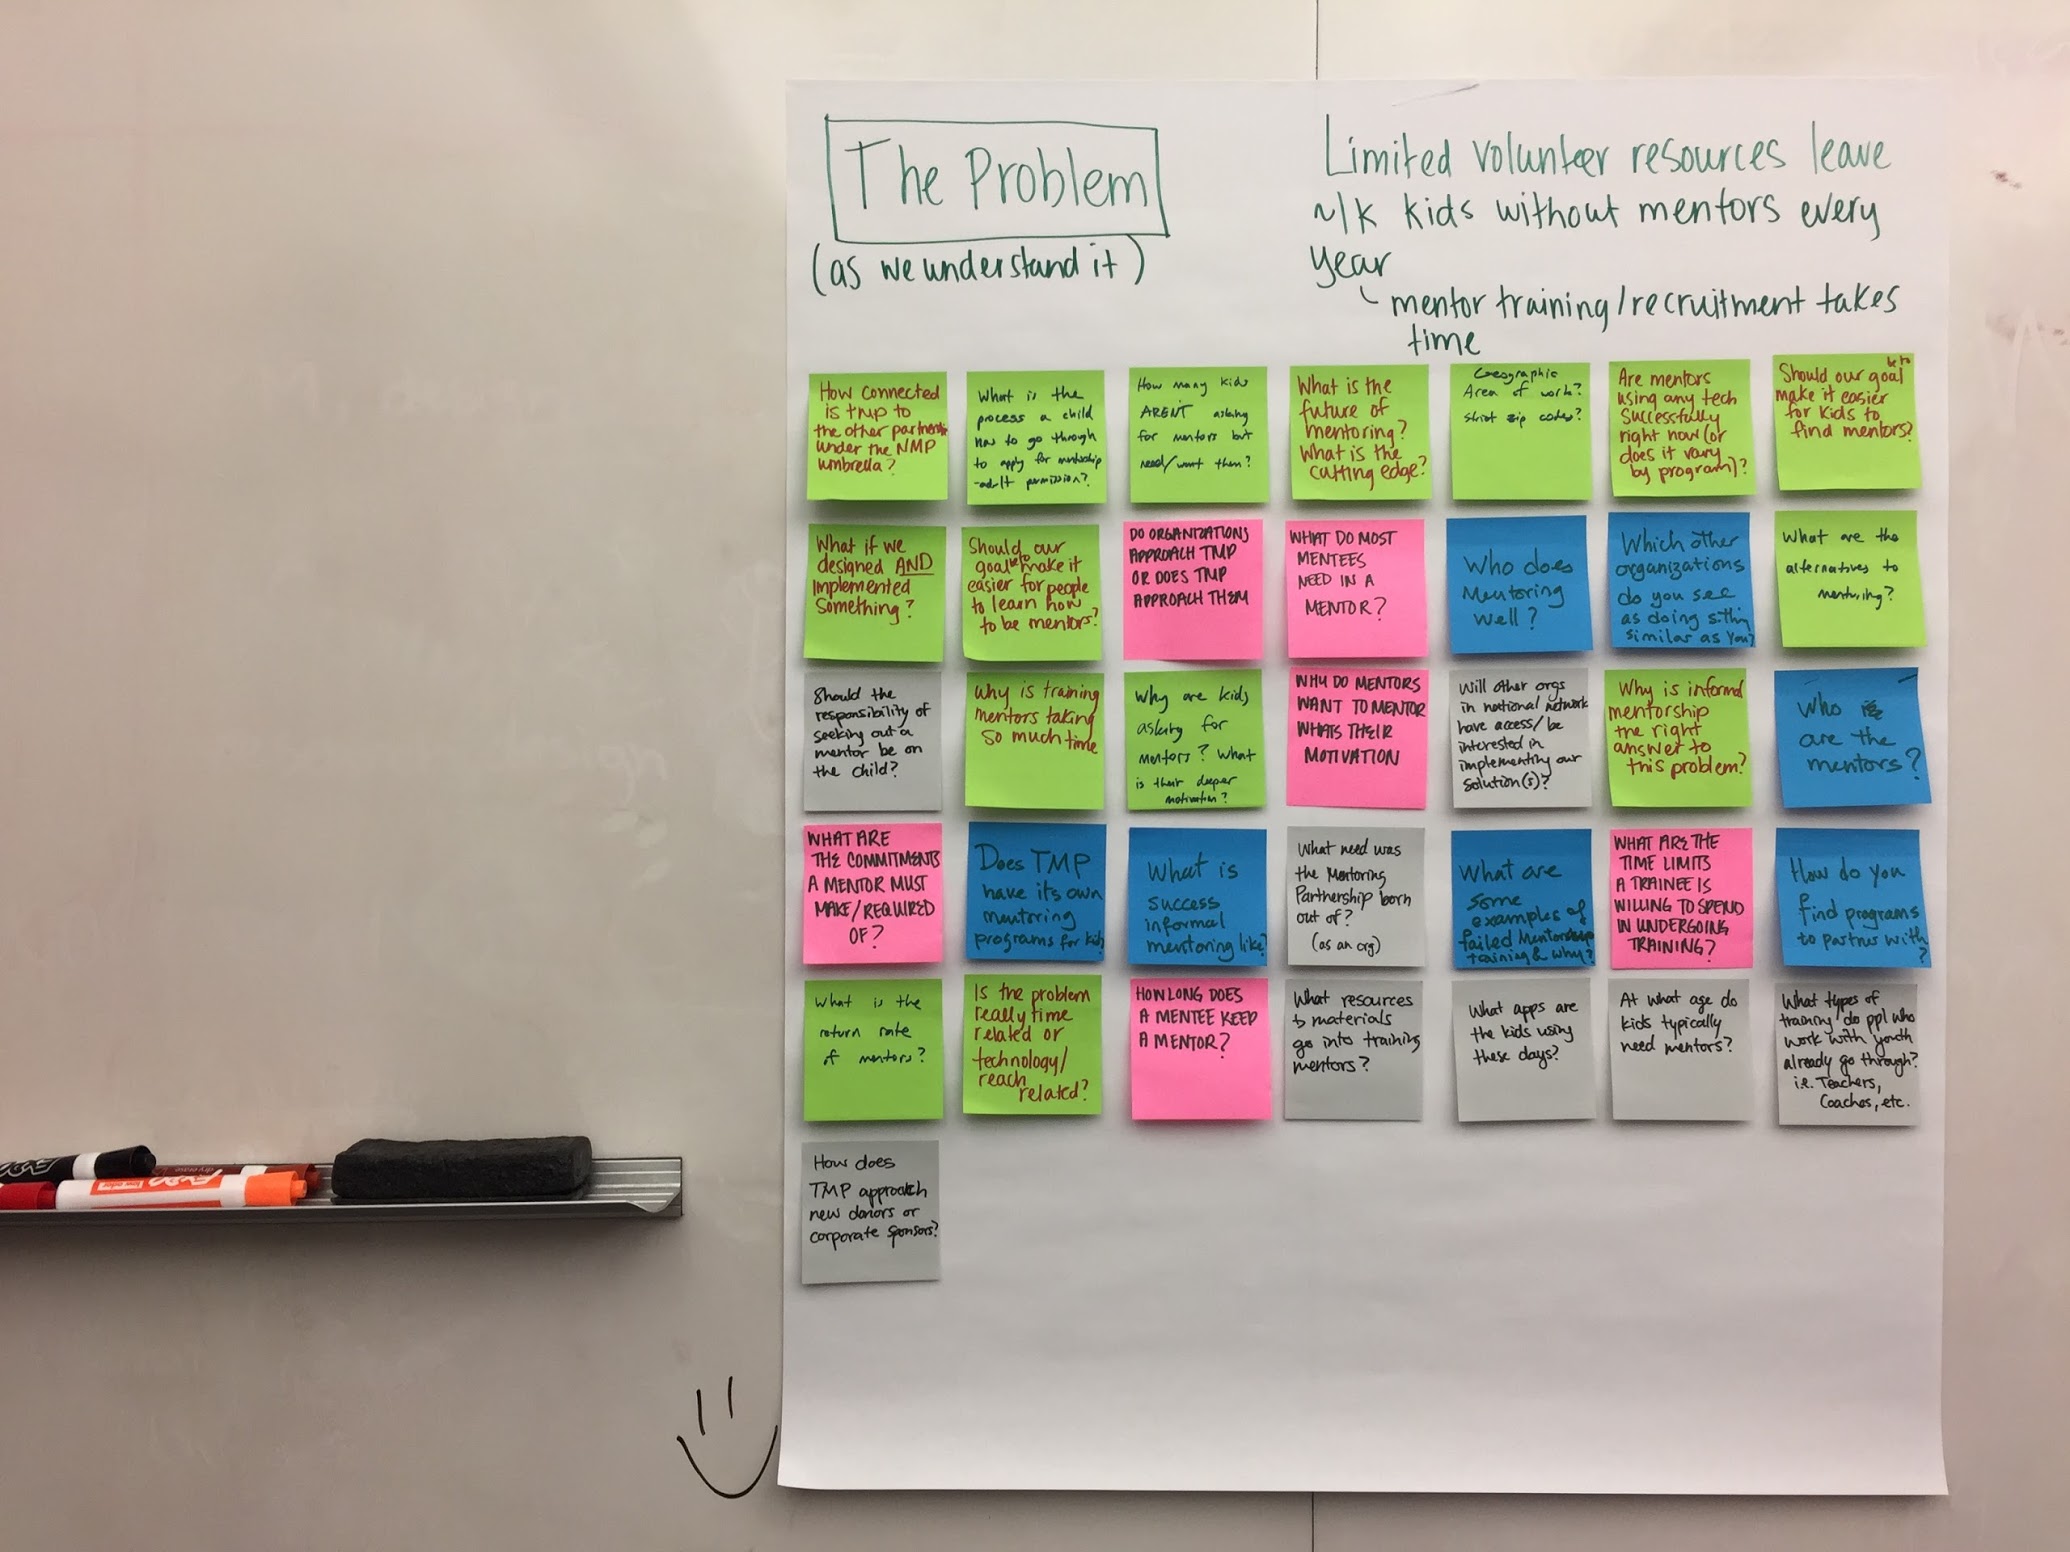 The Problem
(as we understand it)
Limited volunteer resources leave
~1K kids without mentors every
year
mentor training/recruitment takes
time
How connected
is tmp to
the other partners
under the NMP
umbrella?
What is the
process a child
has to go through
to apply for mentorship
-adult permission?
How many kids
AREN'T asking
for mentors but
need/want them?
What is the
future of
mentoring?
What is the
cutting edge?
Geographic
Area of work?
strict zip codes?
Are mentors
using any tech
successfully
right now (or
does it vary
by program)?
Should our goal be to
make it easier
for kids to
find mentors?
What if we
designed AND
implemented
something?
Should our
goal be to make it
easier for people
to learn how
to be mentors?
DO ORGANIZATIONS
APPROACH TMP
OR DOES TMP
APPROACH THEM
WHAT DO MOST
MENTEES
NEED IN A
MENTOR?
Who does
Mentoring
well?
Which other
organizations
do you see
as doing sthng
similar as you?
What are the
alternatives to
mentoring?
Should the
responsibility of
seeking out a
mentor be on
the child?
Why is training
mentors taking
so much time
Why are kids
asking for
mentors? What
is their deeper
motivation?
WHY DO MENTORS
WANT TO MENTOR
WHATS THEIR
MOTIVATION
Will other orgs
in national network
have access/be
interested in
implementing our
solution(s)?
Why is informal
mentorship
the right
answer to
this problem?
Who
are the
mentors?
WHAT ARE
THE COMMITMENTS
A MENTOR MUST
MAKE/REQUIRED
OF?
Does TMP
have its own
mentoring
programs for kids
What is
success
informal
mentoring like?
What need was
the Mentoring
Partnership born
out of?
(as an org)
What are
some
examples of
failed Mentorship
training & why?
WHAT ARE THE
TIME LIMITS
A TRAINEE IS
WILLING TO SPEND
IN UNDERGOING
TRAINING?
How do you
find programs
to partner with?
What is the
return rate
of mentors?
Is the problem
really time
related or
technology/
reach
related?
HOW LONG DOES
A MENTEE KEEP
A MENTOR?
What resources
& materials
go into training
mentors?
What apps are
the kids using
these days?
At what age do
kids typically
need mentors?
What types of
training do ppl who
work with youth
already go through?
i.e. Teachers,
Coaches, etc.
How does
TMP approach
new donors or
corporate sponsors?
EXPO
EXPO